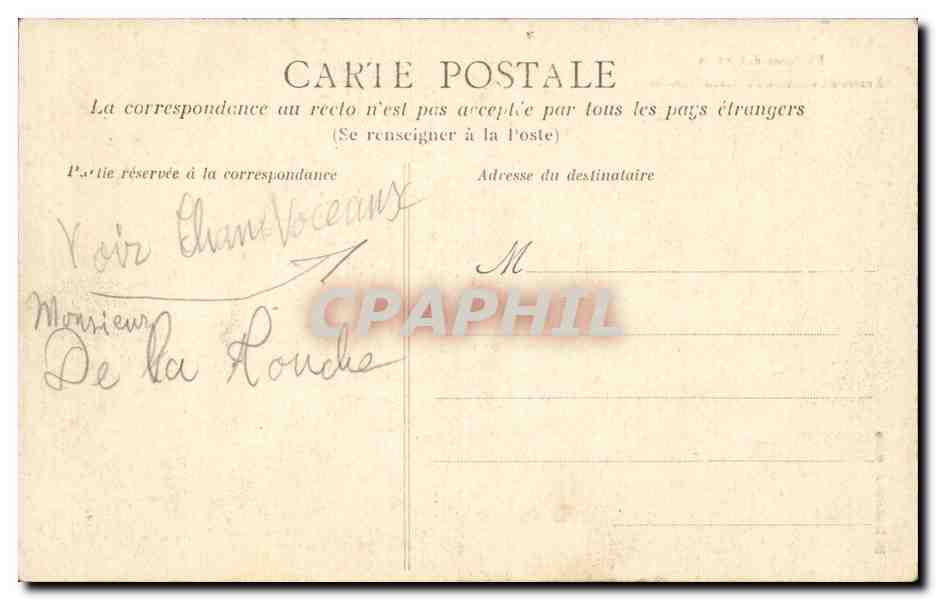 CARTE POSTALE
La correspondance au recto n'est pas acceptée par tous les pays étrangers
(Se renseigner à la Poste)
Partie réservée à la correspondance
Adresse du destinataire
Voir
M
Monsieur
De la
CPAPHIL